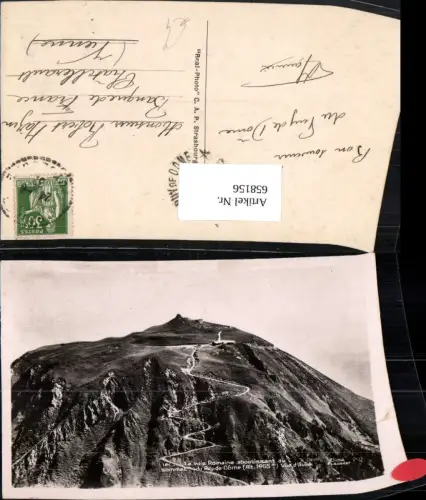 Monsieur Robert
Banque de France
Chatellerault
(Vienne)
Bon souvenir
du Puy de Dôme
Maurice
"Real-Photo" C. A. P. Strasbourg
PUY DE DOME
POSTES
Artikel Nr.
658156
La voie Romaine aboutissant au
sommet du Puy-de-Dôme (Alt. 1465 m) Vue d'avion